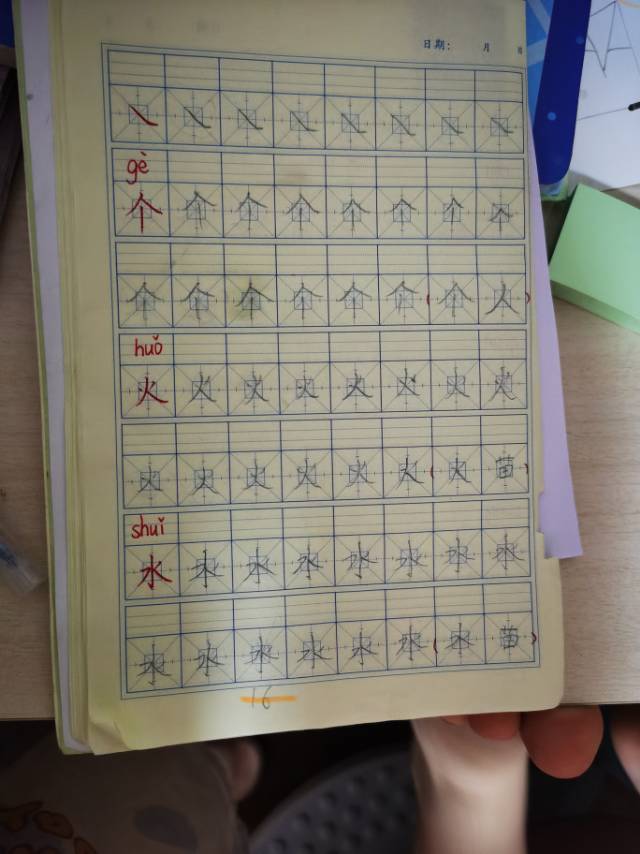 日期: 月 日
㇏ ㇏ ㇏ ㇏ ㇏ ㇏ ㇏ ㇏
gè
个 个 个 个 个 个 个 个
个 个 个 个 个 个 (个 人)
huǒ
火 火 火 火 火 火 火 火
火 火 火 火 火 火 (火 苗)
shuǐ
水 水 水 水 水 水 水 水
水 水 水 水 水 水 (水 苗)
16